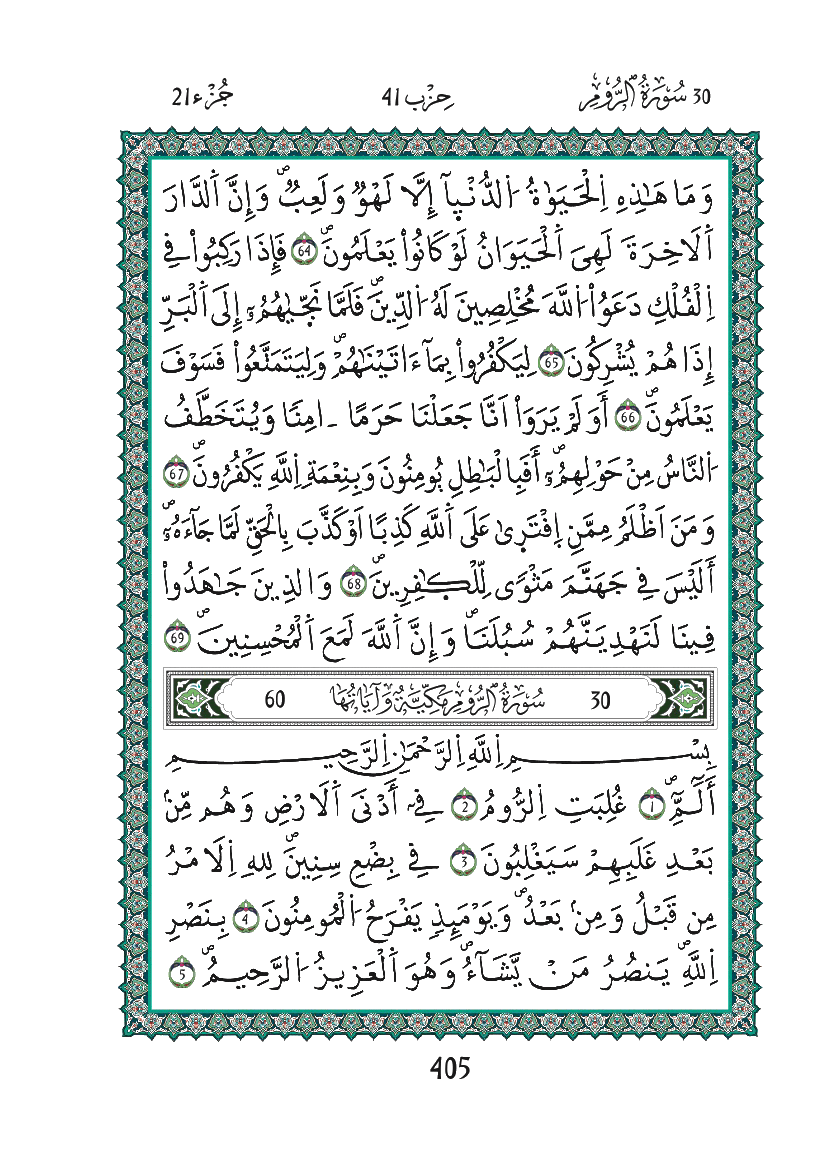 30 سُورَةُ الرُّومِ حِزْب 41 جُزْء 21
وَمَا هَٰذِهِ اِ۬لْحَيَوٰةُ اُ۬لدُّنْيَآ إِلَّا لَهْوٌ وَلَعِبٌۖ وَإِنَّ اَ۬لدَّارَ
اَ۬لَاخِرَةَ لَهِيَ اَ۬لْحَيَوَانُ لَوْ كَانُواْ يَعْلَمُونَۖ 64 فَإِذَا رَكِبُواْ فِي
اِ۬لْفُلْكِ دَعَوُاْ اُ۬للَّهَ مُخْلِصِينَ لَهُ اُ۬لدِّينَۖ فَلَمَّا نَجَّيٰهُمُۥٓ إِلَى اَ۬لْبَرِّ
إِذَا هُمْ يُشْرِكُونَ 65 لِيَكْفُرُواْ بِمَآ ءَاتَيْنَٰهُمْۖ وَلِيَتَمَتَّعُواْ فَسَوْفَ
يَعْلَمُونَۖ 66 أَوَلَمْ يَرَوَاْ اَنَّا جَعَلْنَا حَرَمًا ـ اٰمِنًا وَيُتَخَطَّفُ
اُ۬لنَّاسُ مِنْ حَوْلِهِمُۥٓۖ أَفَبِالْبَٰطِلِ يُومِنُونَ وَبِنِعْمَةِ اِ۬للَّهِ يَكْفُرُونَۖ 67
وَمَنَ اَظْلَمُ مِمَّنِ اِ۪فْتَر۪ىٰ عَلَى اَ۬للَّهِ كَذِبًا اَوْ كَذَّبَ بِالْحَقِّ لَمَّا جَآءَهُۥٓۖ
أَلَيْسَ فِي جَهَنَّمَ مَثْوًى لِّلْكٰ۪فِرِينَۖ 68 وَالذِينَ جَٰهَدُواْ
فِينَا لَنَهْدِيَنَّهُمْ سُبُلَنَاۖ وَإِنَّ اَ۬للَّهَ لَمَعَ اَ۬لْمُحْسِنِينَۖ 69
30 سُورَةُ الرُّومِ مَكِّيَّةٌ وَآيَاتُهَا 60
بِسْمِ اِ۬للَّهِ اِ۬لرَّحْمَٰنِ اِ۬لرَّحِيمِ
أَلَٓمِّٓۖ 1 غُلِبَتِ اِ۬لرُّومُ 2 فِےٓ أَدْنَى اَ۬لَارْضِ وَهُم مِّنۢ
بَعْدِ غَلَبِهِمْ سَيَغْلِبُونَ 3 فِي بِضْعِ سِنِينَۖ لِلهِ اِ۬لَامْرُ
مِن قَبْلُ وَمِنۢ بَعْدُۖ وَيَوْمَئِذٍ يَفْرَحُ اُ۬لْمُومِنُونَ 4 بِنَصْرِ
اِ۬للَّهِۖ يَنصُرُ مَنْ يَّشَآءُۖ وَهُوَ اَ۬لْعَزِيزُ اُ۬لرَّحِيمُۖ 5
405